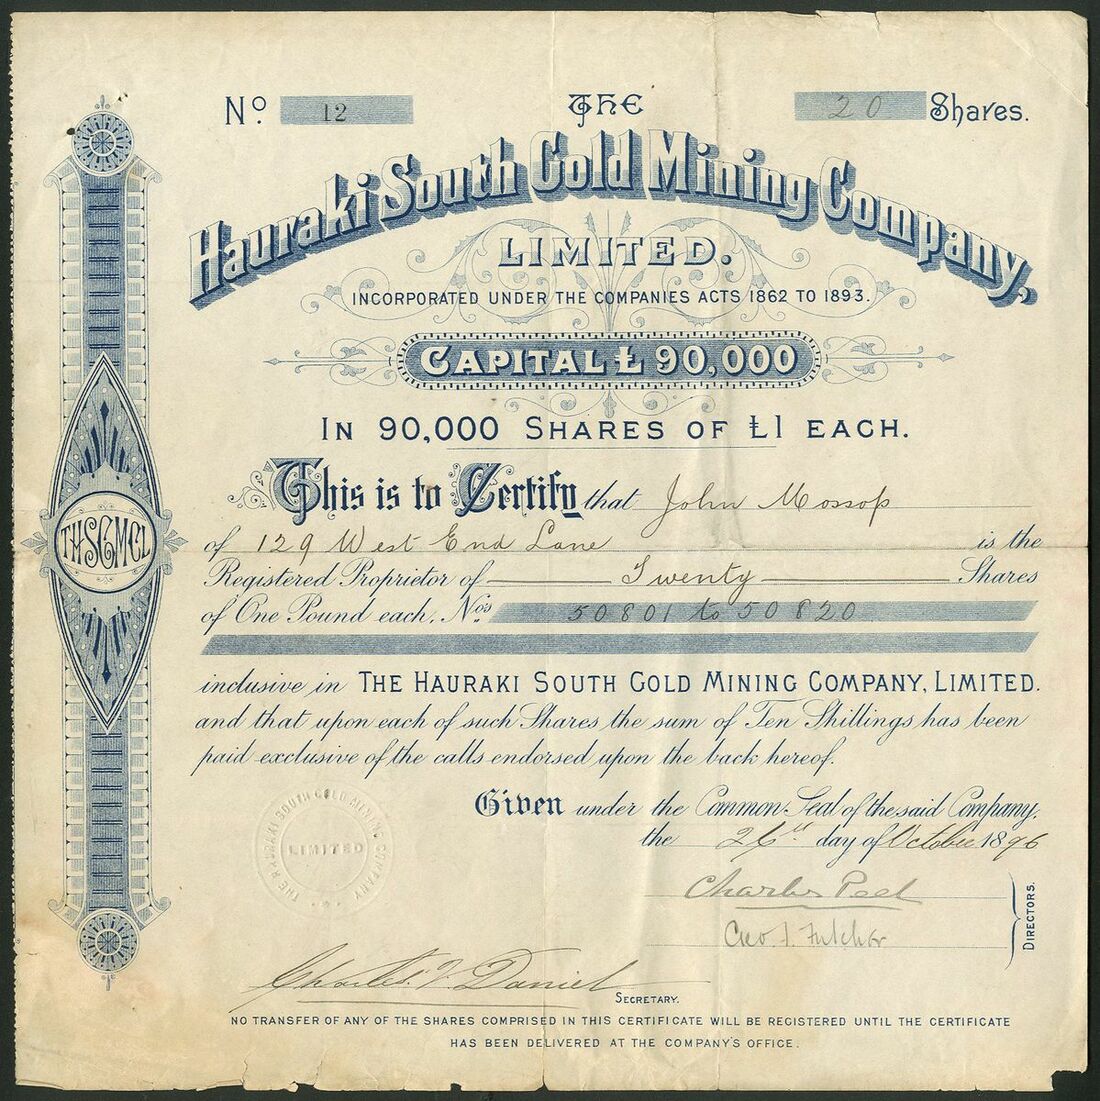 No. 12 THE 20 Shares.
Hauraki South Gold Mining Company,
LIMITED.
INCORPORATED UNDER THE COMPANIES ACTS 1862 TO 1893.
CAPITAL £90,000
IN 90,000 SHARES OF £1 EACH.
This is to Certify that John Mossop
of 129 West End Lane is the
Registered Proprietor of Twenty Shares
of One Pound each. Nos. 50801 to 50820
inclusive in THE HAURAKI SOUTH GOLD MINING COMPANY, LIMITED.
and that upon each of such Shares the sum of Ten Shillings has been
paid exclusive of the calls endorsed upon the back hereof.
THSGMCL
Given under the Common Seal of the said Company.
the 26th day of October 1896
THE HAURAKI SOUTH GOLD MINING COMPANY
LIMITED
Charles Peel
Geo. J. Fulcher
DIRECTORS.
Charles V. Daniel
SECRETARY.
NO TRANSFER OF ANY OF THE SHARES COMPRISED IN THIS CERTIFICATE WILL BE REGISTERED UNTIL THE CERTIFICATE
HAS BEEN DELIVERED AT THE COMPANY'S OFFICE.